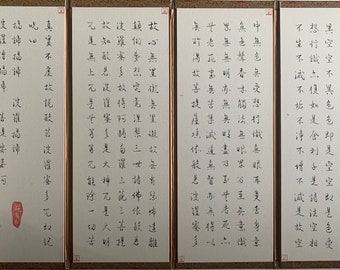 異空空不異色色即是空空即是色受
想行識亦復如是舍利子是諸法空相
不生不滅不垢不淨不增不減是故空
中無色無受想行識無眼耳鼻舌身意
無色聲香味觸法無眼界乃至無意識
界無無明亦無無明盡乃至無老死亦
無老死盡無苦集滅道無智亦無得以
無所得故菩提薩埵依般若波羅蜜多
故心無罣礙無罣礙故無有恐怖遠離
顛倒夢想究竟涅槃三世諸佛依般若
波羅蜜多故得阿耨多羅三藐三菩提
故知般若波羅蜜多是大神咒是大明
咒是無上咒是無等等咒能除一切苦
真實不虛故說般若波羅蜜多咒即說
咒曰
揭諦揭諦 波羅揭諦
波羅僧揭諦 菩提薩婆訶